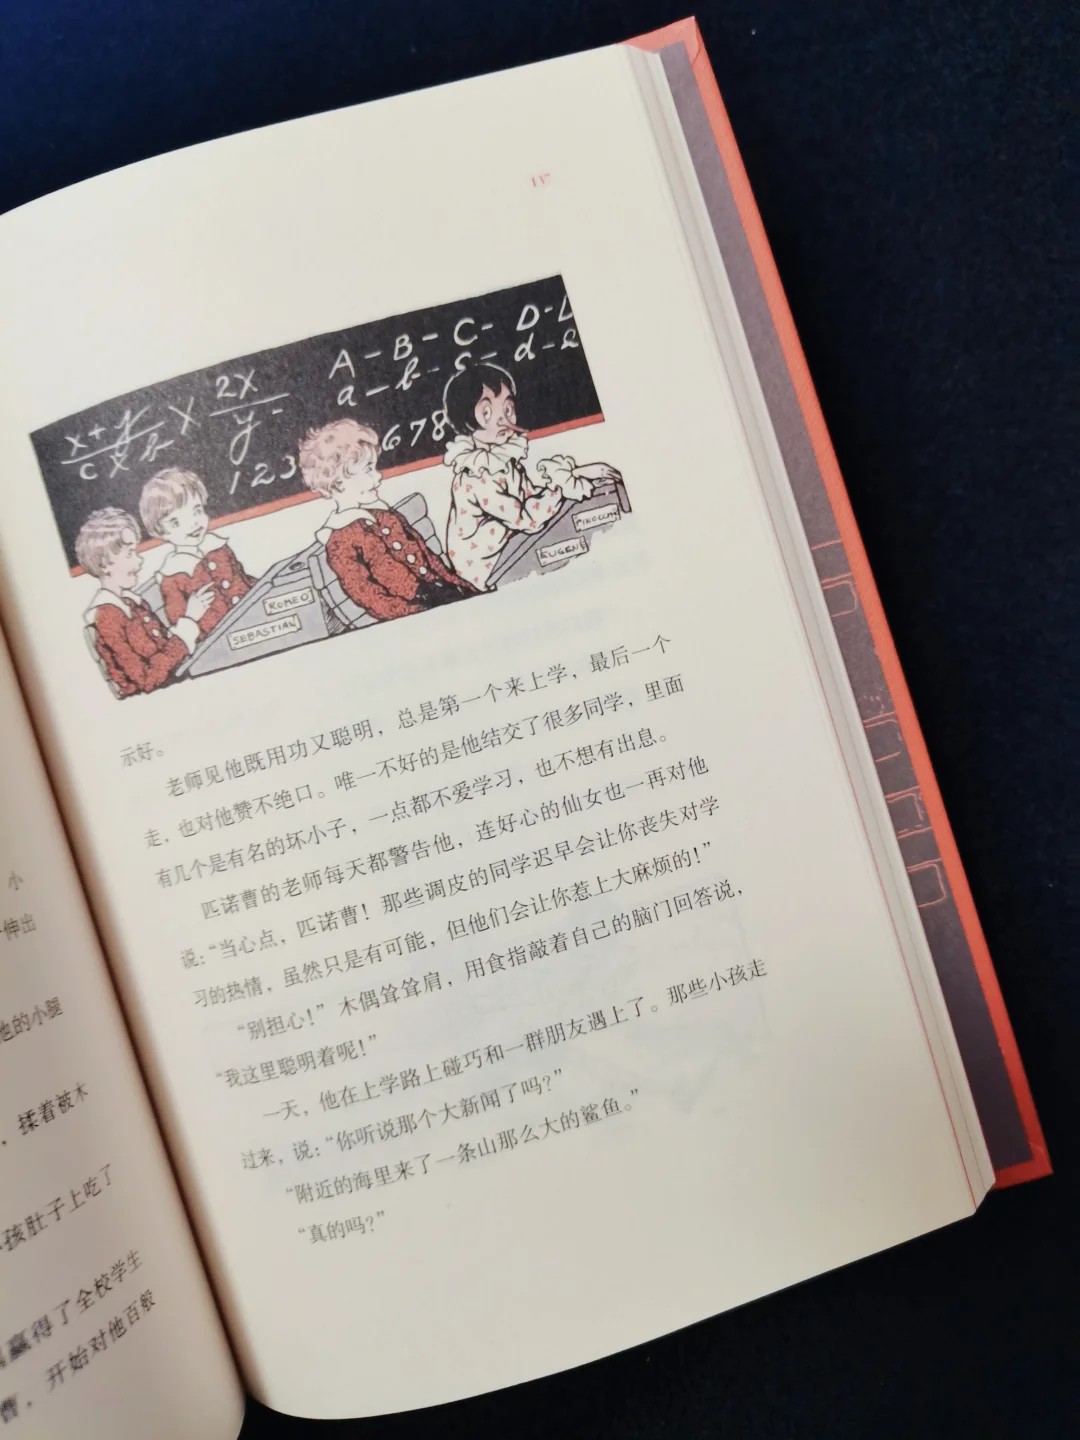 小
伸出
他的小腿
，揉着被木
孩肚子上吃了
赢得了全校学生
曹，开始对他百般
137
A - B - C - D -
a - b - c - d - e
x+y
2x
y
123
678
ROMEO
SEBASTIAN
EUGENE
示好。
老师见他既用功又聪明，总是第一个来上学，最后一个
走，也对他赞不绝口。唯一不好的是他结交了很多同学，里面
有几个是有名的坏小子，一点都不爱学习，也不想有出息。
匹诺曹的老师每天都警告他，连好心的仙女也一再对他
说：“当心点，匹诺曹！那些调皮的同学迟早会让你丧失对学
习的热情，虽然只是有可能，但他们会让你惹上大麻烦的！”
“别担心！”木偶耸耸肩，用食指敲着自己的脑门回答说，
“我这里聪明着呢！”
一天，他在上学路上碰巧和一群朋友遇上了。那些小孩走
过来，说：“你听说那个大新闻了吗？”
“附近的海里来了一条山那么大的鲨鱼。”
“真的吗？”